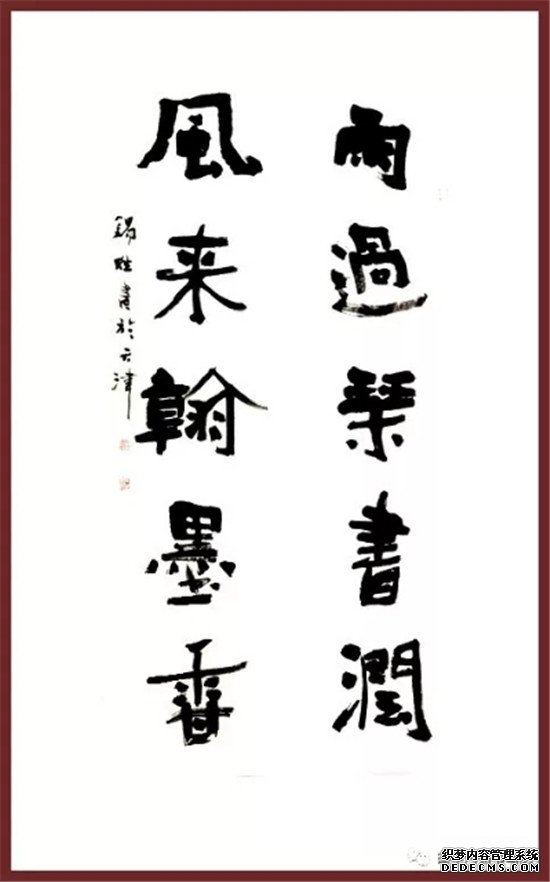 雨過琴書潤
風来翰墨香
錫 書於天津
织梦内容管理系统
DEDECMS.COM